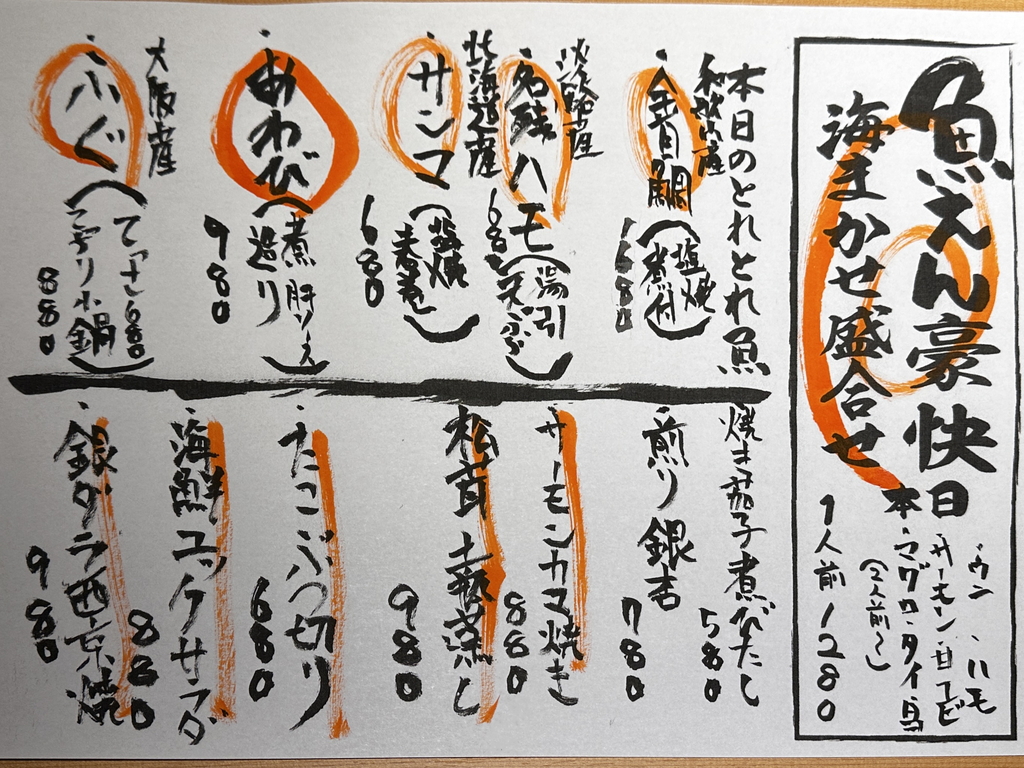 魚えん豪快
海まかせ盛合せ
日
本
・ウニ ・ハモ
・サーモン・甘エビ
・マグロ・タイ
(2人前〜)
1人前1280
本日のとれとれ魚
和歌山産
・金目鯛(塩焼 煮付) 1680
淡路産
・名残ハモ(湯引 天ぷら) 680
北海道産
・サンマ(塩焼) 680
・あわび(煮 肝ソース 造り) 980
大阪産
・ふぐ(てっさ680 てっちり小鍋) 880
焼き茄子煮びたし 580
煎り銀杏 780
・サーモンカマ焼き 880
・松茸土瓶蒸し 980
・たこぶつ切り 680
・海鮮ユッケサラダ 880
・銀ダラ西京焼 980